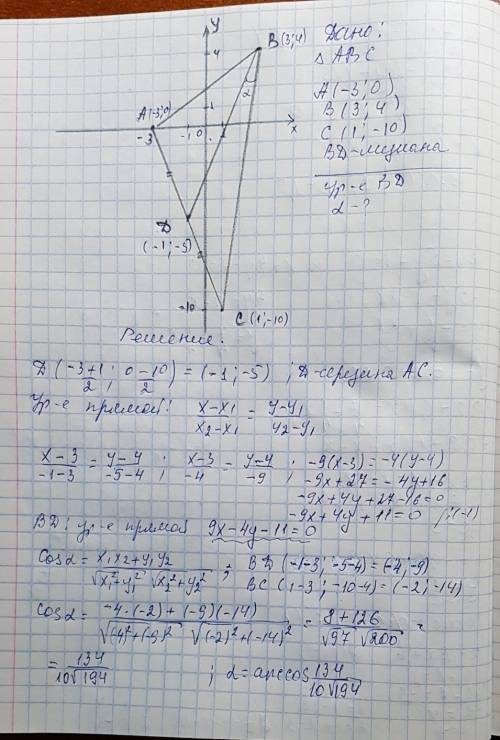 y
4
B(3;4)
α
A(-3;0)
1
-3
-1
0
x
D
(-1;-5)
-10
C(1;-10)
Дано:
△ABC
A(-3;0)
B(3;4)
C(1;-10)
BD-медиана
Ур-е BD
α-?
Решение.
D(-3+1/2; 0-10/2) = (-1;-5) ; D-середина AC.
Ур-е прямой: x-x₁/x₂-x₁ = y-y₁/y₂-y₁
x-3/-1-3 = y-4/-5-4 ; x-3/-4 = y-4/-9 ; -9(x-3) = -4(y-4)
-9x+27 = -4y+16
-9x+4y+27-16=0
-9x+4y+11=0 /:(-1)
BD: ур-е прямой 9x-4y-11=0
cosα = x₁x₂+y₁y₂/√x₁²+y₁² √x₂²+y₂² ; BD(-1-3; -5-4)=(-4;-9)
BC(1-3; -10-4)=(-2;-14)
cosα = -4·(-2)+(-9)(-14)/√(-4)²+(-9)² √(-2)²+(-14)² = 8+126/√97 √200 =
= 134/10√194 ; α=arccos 134/10√194